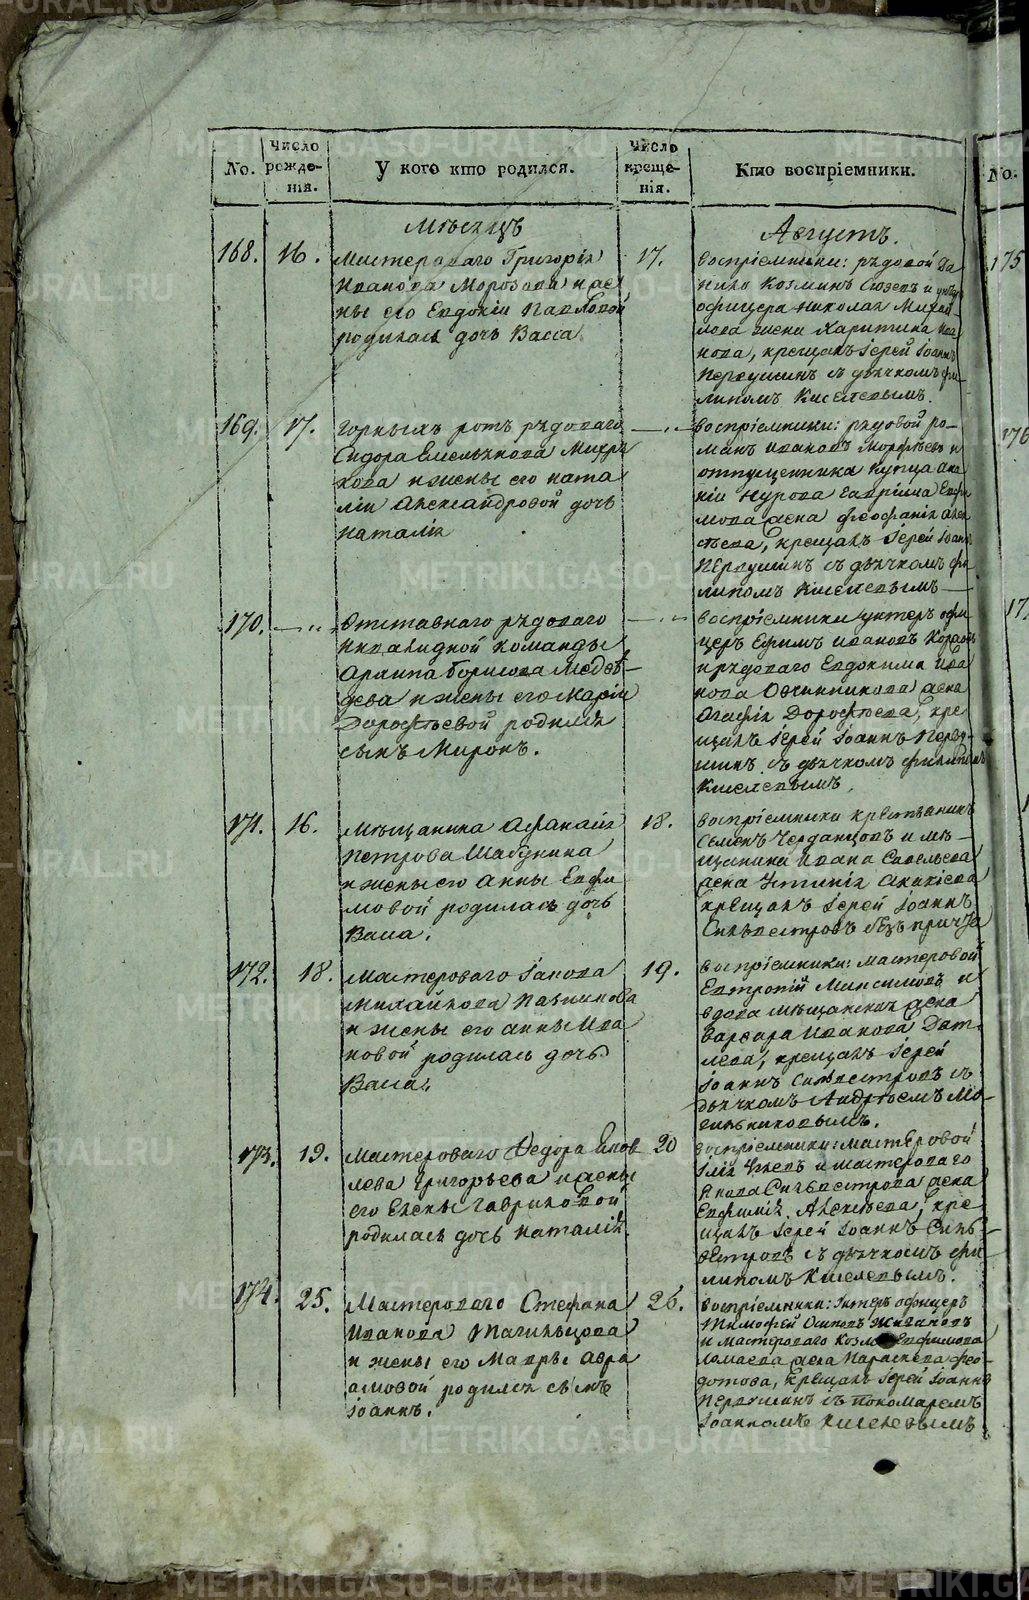 No.
Число рожде-нія.
У кого кто родился.
Число креще-нія.
Кто воспріемники.
No.
Мѣсяцъ
Августъ.
168. 16. Мастероваго Григорія
Иванова Морозова и же
ны его Евдокіи Павловой
родилась дочь Васса
17.
Воспріемники: рядовой Да
нило Козминъ и унтеръ
офицера Николая Михай
лова жена Харитина Ива
нова, крещалъ Іерей Іоаннъ
Первушинъ съ дьячкомъ Фи
липомъ Киселевымъ.
169. 17. Горныхъ ротъ рядоваго
Сидора Емельянова
и жены его Ната
ліи Александровой дочь
Наталія
Воспріемники: рядовой Ро
манъ Ивановъ и
отпущенника купца
Гавріила Евфи
мова жена Феофанія Алек
сѣева, крещалъ Іерей Іоаннъ
Первушинъ съ дьячкомъ Фи
липомъ Киселевымъ
170. Отставнаго рядоваго
Инвалидной команды
Архипа Борисова Медвѣ
дева и жены его Маріи
Дорофѣевой родился
сынъ Миронъ.
Воспріемники унтеръ офи
церъ Ефимъ Ивановъ
и рядоваго Евдокима Ива
нова Овчинникова жена
Агафія Дорофѣева, кре
щалъ Іерей Іоаннъ Перву-
шинъ съ дьячкомъ Филипомъ
Киселевымъ.
171. 16. Мѣщанина Афанасія
Петрова Шабунина
и жены его Анны Евфи
мовой родилась дочь
Васса.
18.
Воспріемники крестьянинъ
Семенъ Черданцовъ и мѣ
щанина Ивана Савельева
жена Устинія Акакіева
крещалъ Іерей Іоаннъ
Сильвестровъ безъ причта
172. 18. Мастероваго Іакова
Михайлова
и жены его Анны Ива
новой родилась дочь
Васса.
19.
Воспріемники: мастеровой
Евтропій Максимовъ и
вдова мѣщанская жена
Варвара Иванова
крещалъ Іерей
Іоаннъ Сильвестровъ съ
дьячкомъ Андреемъ
173. 19. Мастероваго Федора Яков
лева Григорьева и жены
его Елены Гавриловой
родилась дочь Наталія.
20
Воспріемники: мастеровой
Илія и мастероваго
Якова Сильвестрова жена
Евфимія Алексѣева, кре
щалъ Іерей Іоаннъ Силь
вестровъ съ дьячкомъ Фи
липомъ Киселевымъ.
174. 25. Мастероваго Стефана
Иванова Тагильцова
и жены его Мавры Авра
амовой родился сынъ
Іоаннъ.
26.
Воспріемники: Унтеръ офицеръ
Тимофей Осиповъ Жигаловъ
и мастероваго Козмы Евфимова
жена Параскева Фео
дотова, крещалъ Іерей Іоаннъ
Первушинъ съ пономаремъ
Іоанномъ Киселевымъ
175
176
METRIKI.GASO-URAL.RU